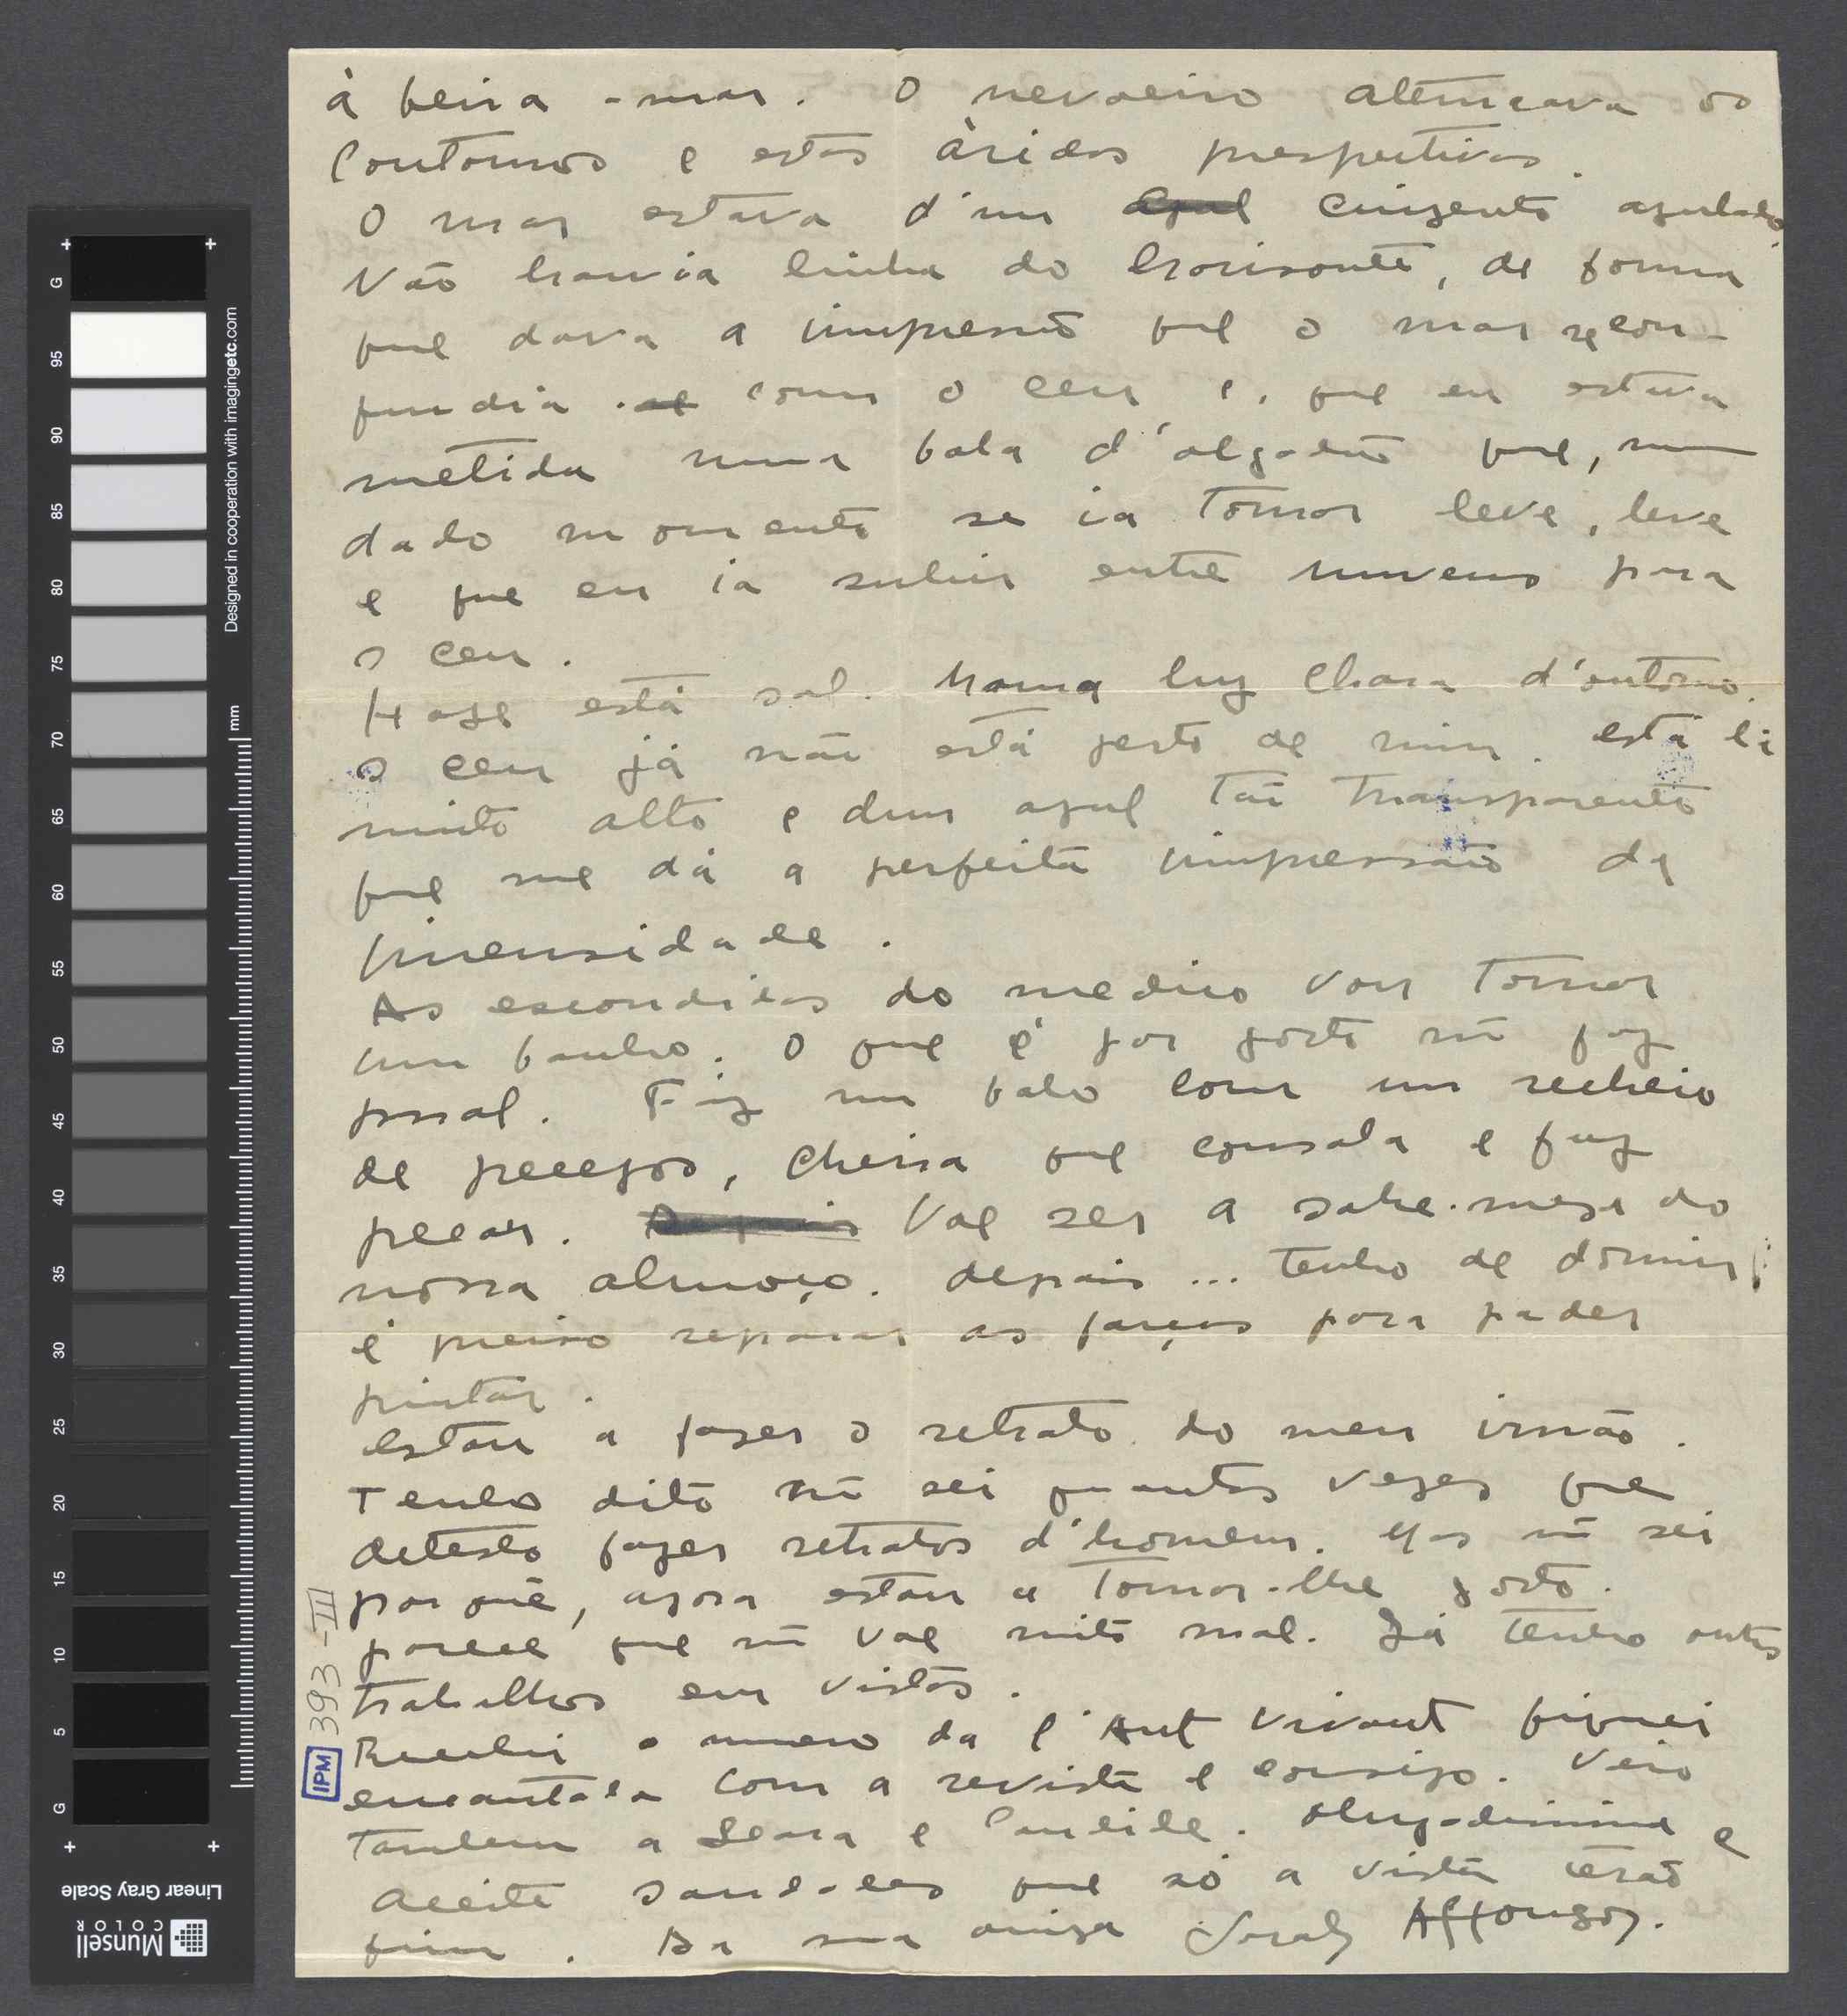 à beira-mar. O nevoeiro atenuava os
contornos e estas àridas prespectivas.
O mar estava d'um azul cinzento azulado.
Não havia linha do horisonte, de forma
que dava a impressão que o mar se con-
fundia se com o ceu e, que eu estava
metida numa bola d'algodão que, num
dado momento se ia tornar leve, leve
e que eu ia subir entre nuvens para
o ceu.
Hoje está sol. uma luz clara d'outono.
O ceu já não está perto de mim. está lá
muito alto e dum azul tão transparente
que me dá a perfeita impressão da
imensidade.
As escondidas do medico vou tomar
um banho. O que é por gosto nã faz
mal. Fiz um bolo com um recheio
de pecegos, cheira que consola e faz
pecar. Depois Vae ser a sobre-mesa do
nosso almoço. depois ... tenho de dormir!
é preciso reparar as forças para poder
pintar.
Estou a fazer o retrato do meu irmão.
Tenho dito nã sei quantas vezes que
detesto fazer retratos d'homem. Mas nã sei
porquê, agora estou a tomar-lhe gosto.
parece que nã vae muito mal. Já tenho outros
trabalhos em vistas.
Recebi o numero da l'Art Vivant fiquei
encantada com a revista e consigo. Veio
tambem a Seara e Candide. Obrigadissima e
aceite saudades que só a vista terão
fim. Da sua amiga Sarah Affonso.
393-III
IPM
G
95
90
85
80
75
70
65
60
55
50
45
40
35
30
25
20
15
10
5
G
mm
Designed in cooperation with imagingetc.com
Linear Gray Scale
Munsell
COLOR